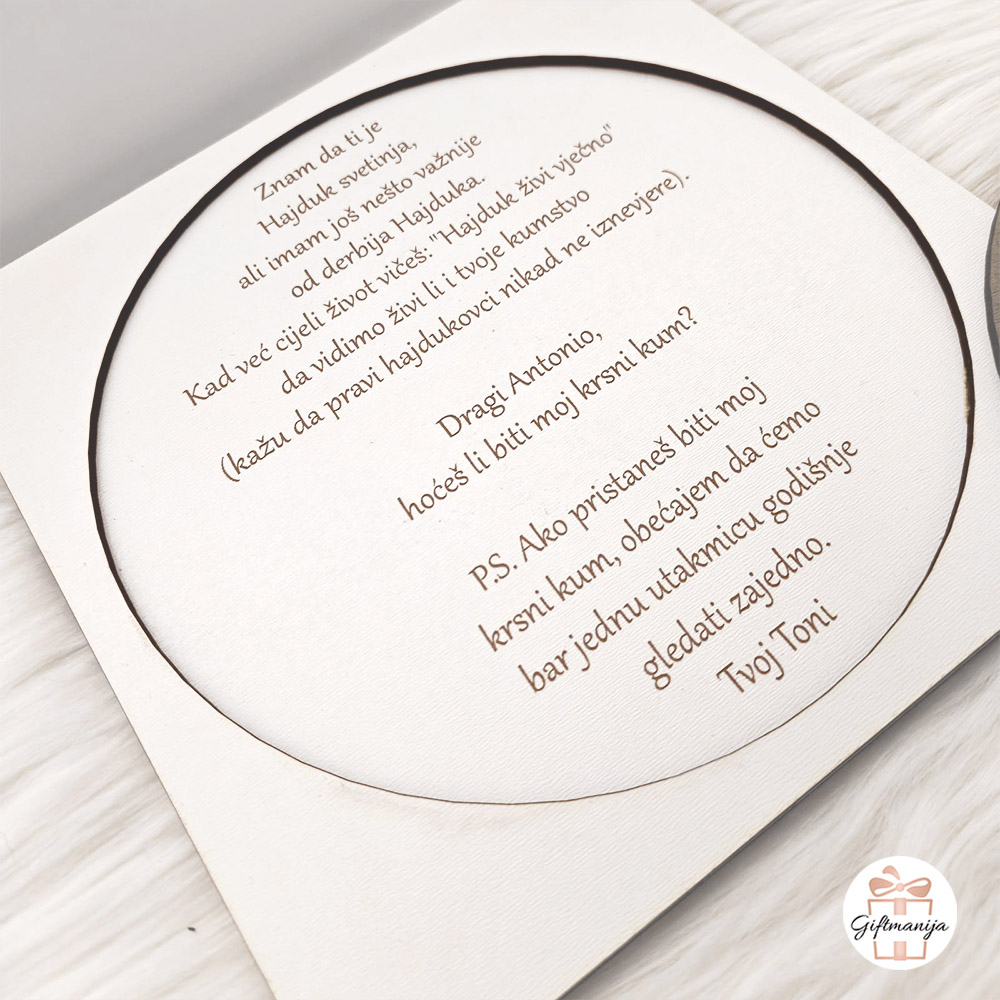 Znam da ti je
Hajduk svetinja,
ali imam još nešto važnije
od derbija Hajduka.
Kad već cijeli život vičeš: "Hajduk živi vječno"
da vidimo živi li i tvoje kumstvo
(kažu da pravi hajdukovci nikad ne iznevjere).
Dragi Antonio,
hoćeš li biti moj krsni kum?
P.S. Ako pristaneš biti moj
krsni kum, obećajem da ćemo
bar jednu utakmicu godišnje
gledati zajedno.
Tvoj Toni
Giftmanija